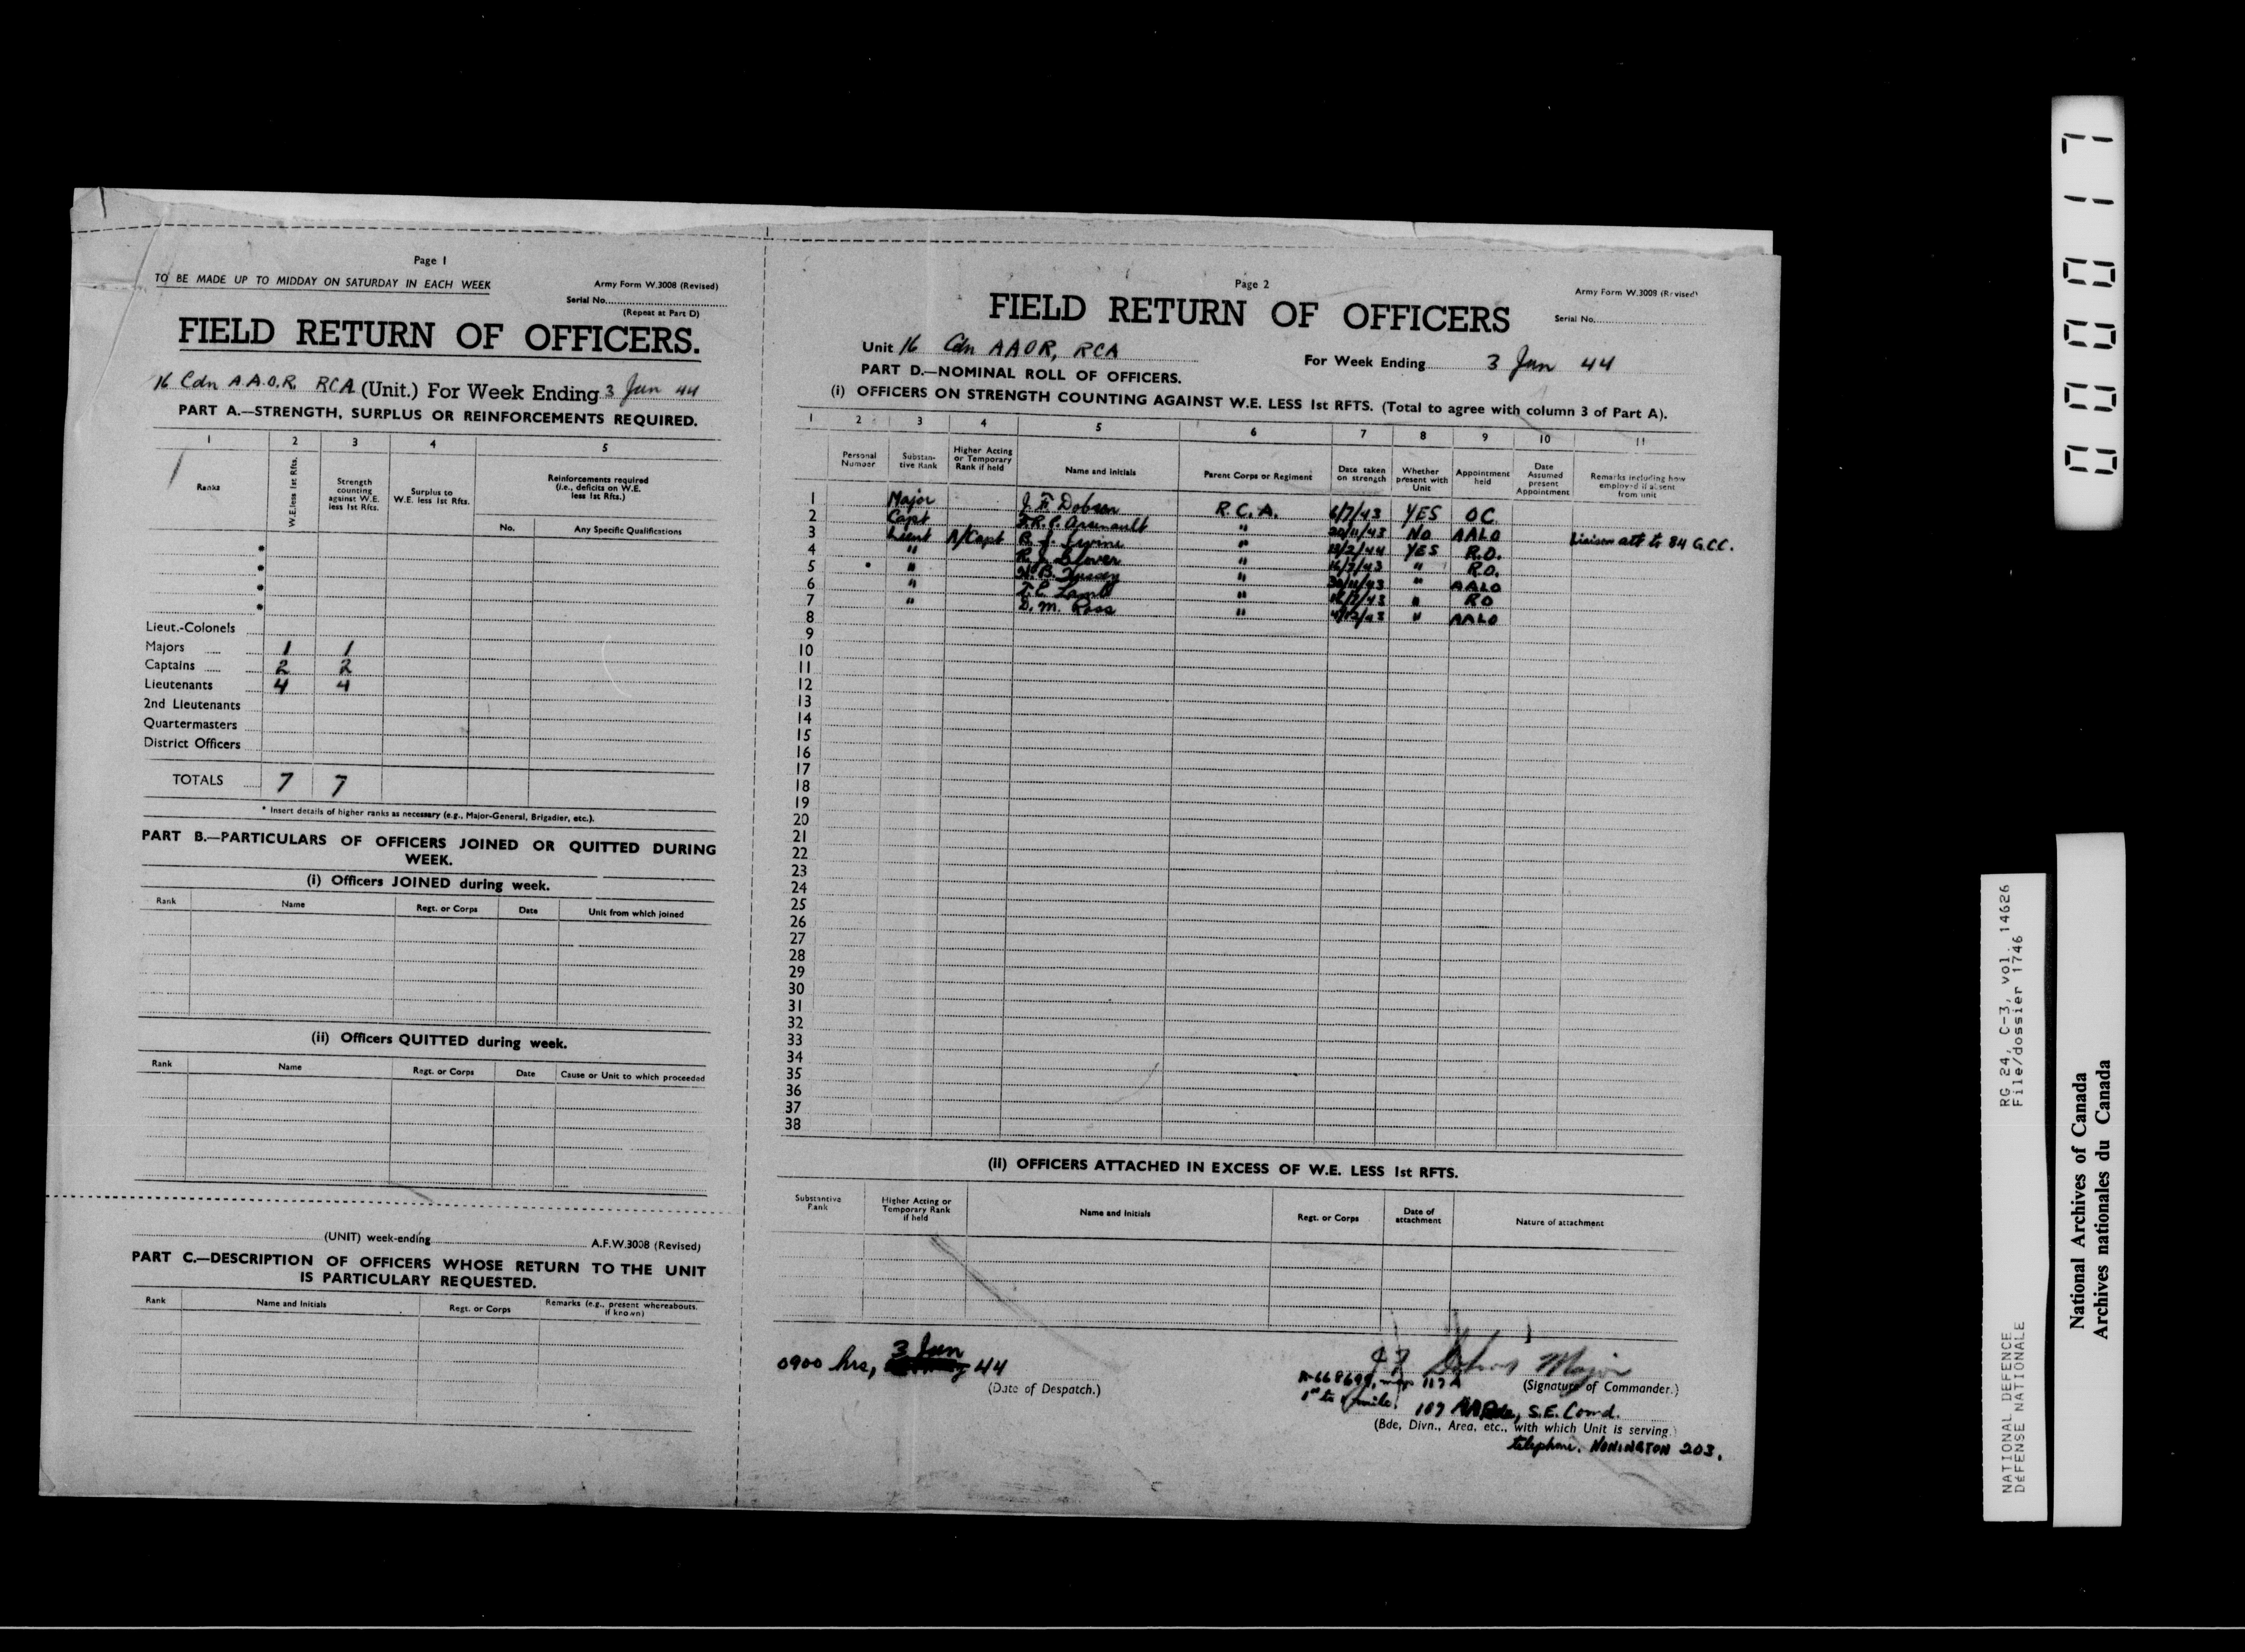 Page 1
TO BE MADE UP TO MIDDAY ON SATURDAY IN EACH WEEK
Army Form W.3008 (Revised)
Serial No.
(Repeat at Part D)
FIELD RETURN OF OFFICERS.
16 Cdn A.A.O.R. RCA (Unit.) For Week Ending 3 Jun 44
PART A.—STRENGTH, SURPLUS OR REINFORCEMENTS REQUIRED.
1 2 3 4 5
Ranks
W.E. less 1st Rfts.
Strength counting against W.E. less 1st Rfts.
Surplus to W.E. less 1st Rfts.
Reinforcements required (i.e., deficits on W.E. less 1st Rfts.)
No. Any Specific Qualifications
*
*
*
*
Lieut.-Colonels
Majors 1 1
Captains 2 2
Lieutenants 4 4
2nd Lieutenants
Quartermasters
District Officers
TOTALS 7 7
* Insert details of higher ranks as necessary (e.g., Major-General, Brigadier, etc.).
PART B.—PARTICULARS OF OFFICERS JOINED OR QUITTED DURING
WEEK.
(i) Officers JOINED during week.
Rank Name Regt. or Corps Date Unit from which joined
(ii) Officers QUITTED during week.
Rank Name Regt. or Corps Date Cause or Unit to which proceeded
(UNIT) week-ending A.F.W.3008 (Revised)
PART C.—DESCRIPTION OF OFFICERS WHOSE RETURN TO THE UNIT
IS PARTICULARY REQUESTED.
Rank Name and Initials Regt. or Corps Remarks (e.g., present whereabouts, if known)
Page 2
Army Form W.3008 (Revised)
FIELD RETURN OF OFFICERS
Serial No.
Unit 16 Cdn AAOR, RCA
For Week Ending 3 Jun 44
PART D.—NOMINAL ROLL OF OFFICERS.
(i) OFFICERS ON STRENGTH COUNTING AGAINST W.E. LESS 1st RFTS. (Total to agree with column 3 of Part A).
1 2 3 4 5 6 7 8 9 10 11
Personal Number
Substantive Rank
Higher Acting or Temporary Rank if held
Name and Initials
Parent Corps or Regiment
Date taken on strength
Whether present with Unit
Appointment held
Date Assumed present Appointment
Remarks including how employed if absent from unit
1 Major J. F. Dobson R.C.A. 6/7/43 YES OC
2 Capt F.R.C. Arsenault " 20/11/43 NO AALO Liaison att to 84 G.C.C.
3 Lieut A/Capt B. J. Irvine " 13/2/44 YES R.O.
4 " " " R.O.
5 " " 30/11/43 " AALO
6 " T.C. Lamb " " RO
7 " D. M. Ross " 4/12/43 " AALO
8
9
10
11
12
13
14
15
16
17
18
19
20
21
22
23
24
25
26
27
28
29
30
31
32
33
34
35
36
37
38
(II) OFFICERS ATTACHED IN EXCESS OF W.E. LESS 1st RFTS.
Substantive Rank
Higher Acting or Temporary Rank if held
Name and Initials
Regt. or Corps
Date of attachment
Nature of attachment
0900 hrs, 3 Jun 44
(Date of Despatch.)
J F Dobson Major
(Signature of Commander.)
117A
1" to 1 mile.
109 Bde, S.E. Comd.
(Bde, Divn., Area, etc., with which Unit is serving.)
telephone. NONINGTON 203.
000017
RG 24, C-3, vol. 14626
File/dossier 1746
NATIONAL DEFENCE
DÉFENSE NATIONALE
National Archives of Canada
Archives nationales du Canada